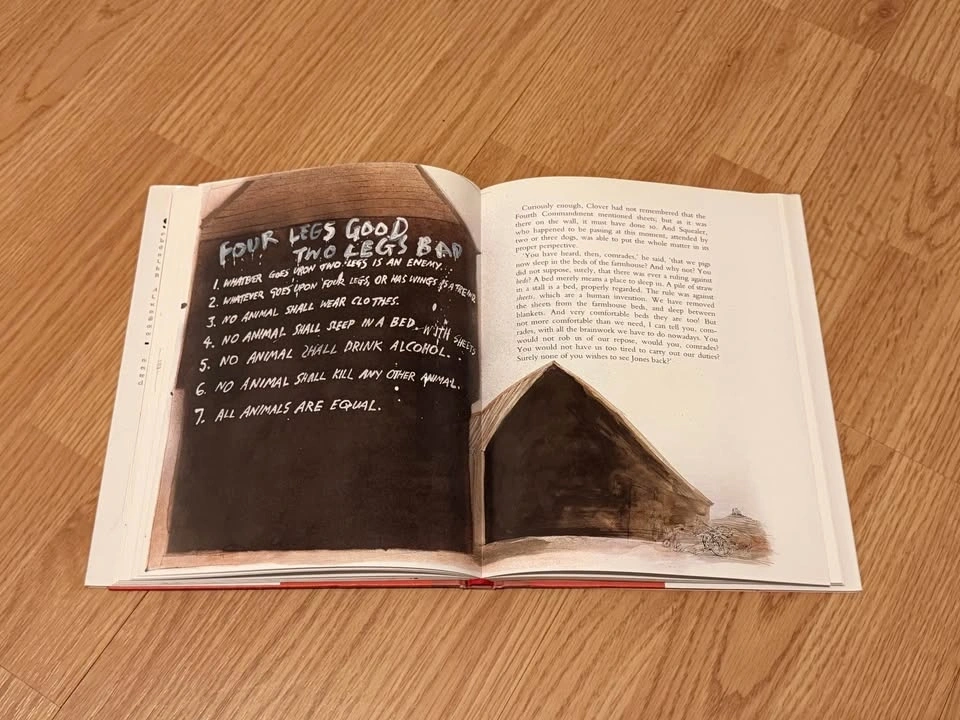 FOUR LEGS GOOD
TWO LEGS BAD
1. WHATEVER GOES UPON TWO LEGS IS AN ENEMY.
2. WHATEVER GOES UPON FOUR LEGS, OR HAS WINGS, IS A FRIEND
3. NO ANIMAL SHALL WEAR CLOTHES.
4. NO ANIMAL SHALL SLEEP IN A BED. WITH SHEETS
5. NO ANIMAL SHALL DRINK ALCOHOL.
6. NO ANIMAL SHALL KILL ANY OTHER ANIMAL.
7. ALL ANIMALS ARE EQUAL.
Curiously enough, Clover had not remembered that the
Fourth Commandment mentioned sheets; but as it was
there on the wall, it must have done so. And Squealer,
who happened to be passing at this moment, attended by
two or three dogs, was able to put the whole matter in its
proper perspective.
'You have heard, then, comrades,' he said, 'that we pigs
now sleep in the beds of the farmhouse? And why not? You
did not suppose, surely, that there was ever a ruling against
beds? A bed merely means a place to sleep in. A pile of straw
in a stall is a bed, properly regarded. The rule was against
sheets, which are a human invention. We have removed
the sheets from the farmhouse beds, and sleep between
blankets. And very comfortable beds they are too! But
not more comfortable than we need, I can tell you, com-
rades, with all the brainwork we have to do nowadays. You
would not rob us of our repose, would you, comrades?
You would not have us too tired to carry out our duties?
Surely none of you wishes to see Jones back?'